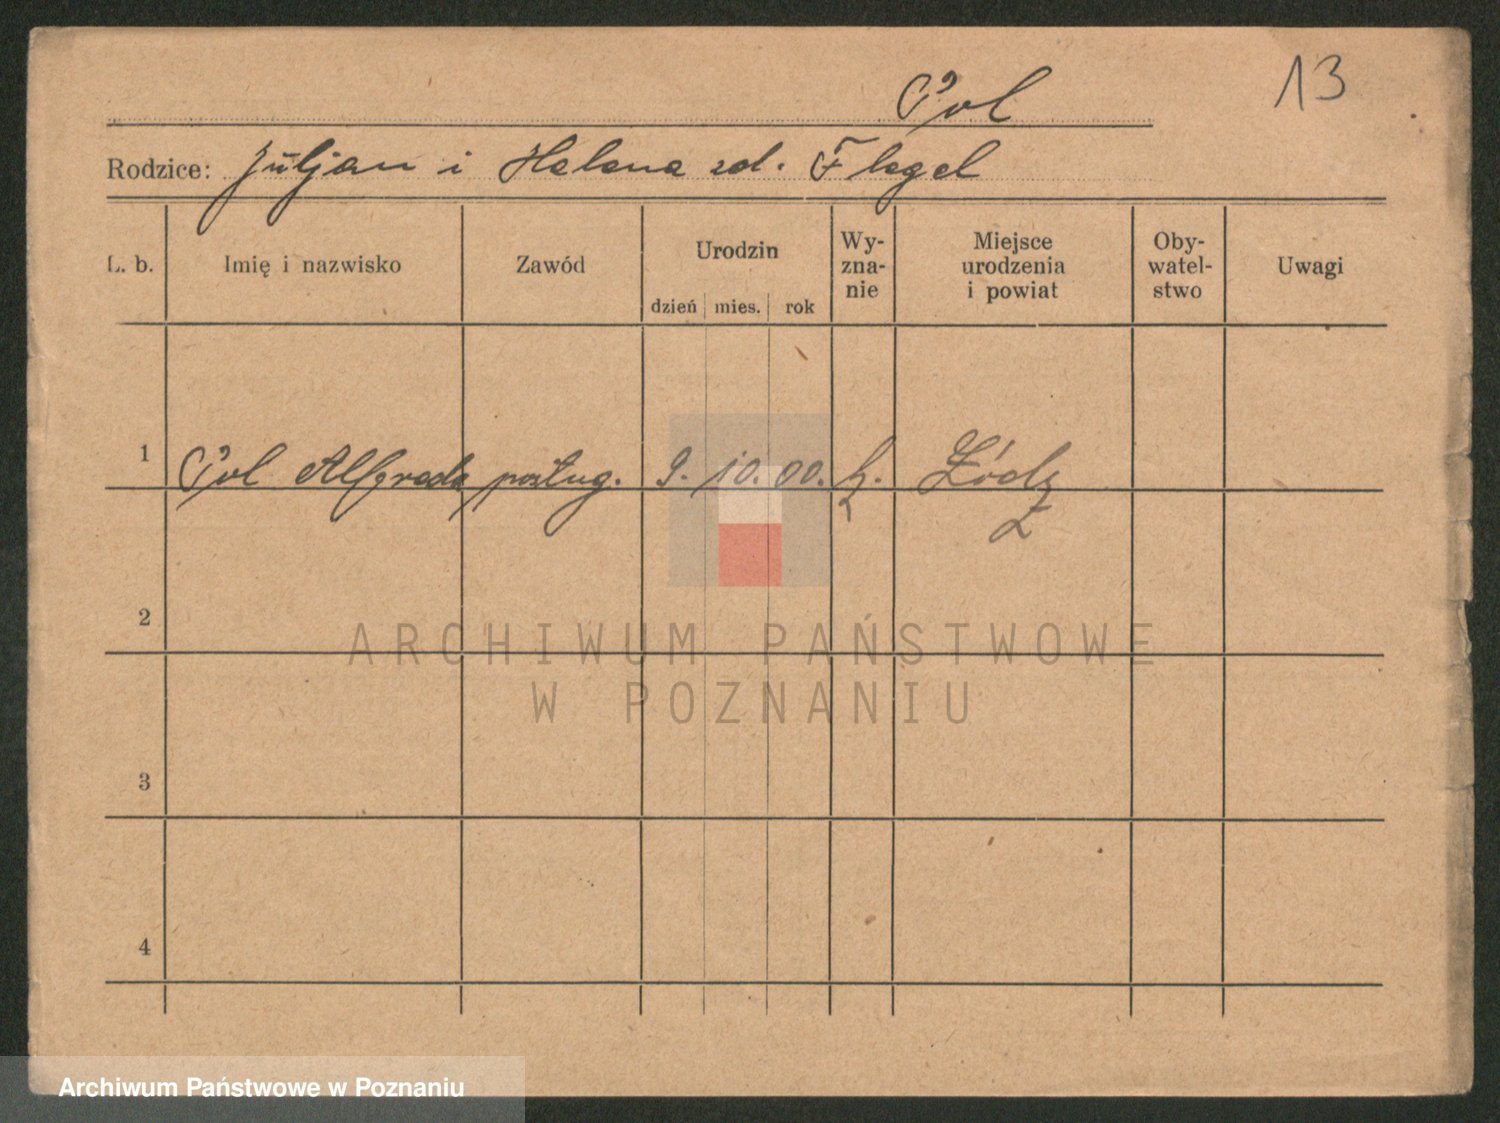 13
Pol
Rodzice: Juljan i Helena zd. Flegel
L. b. Imię i nazwisko Zawód Urodzin dzień mies. rok Wy-zna-nie Miejsce urodzenia i powiat Oby-watel-stwo Uwagi
1 Pol Alfreda posług. 9. 10. 00. k. Łódź
2
3
4
ARCHIWUM PAŃSTWOWE
W POZNANIU
Archiwum Państwowe w Poznaniu